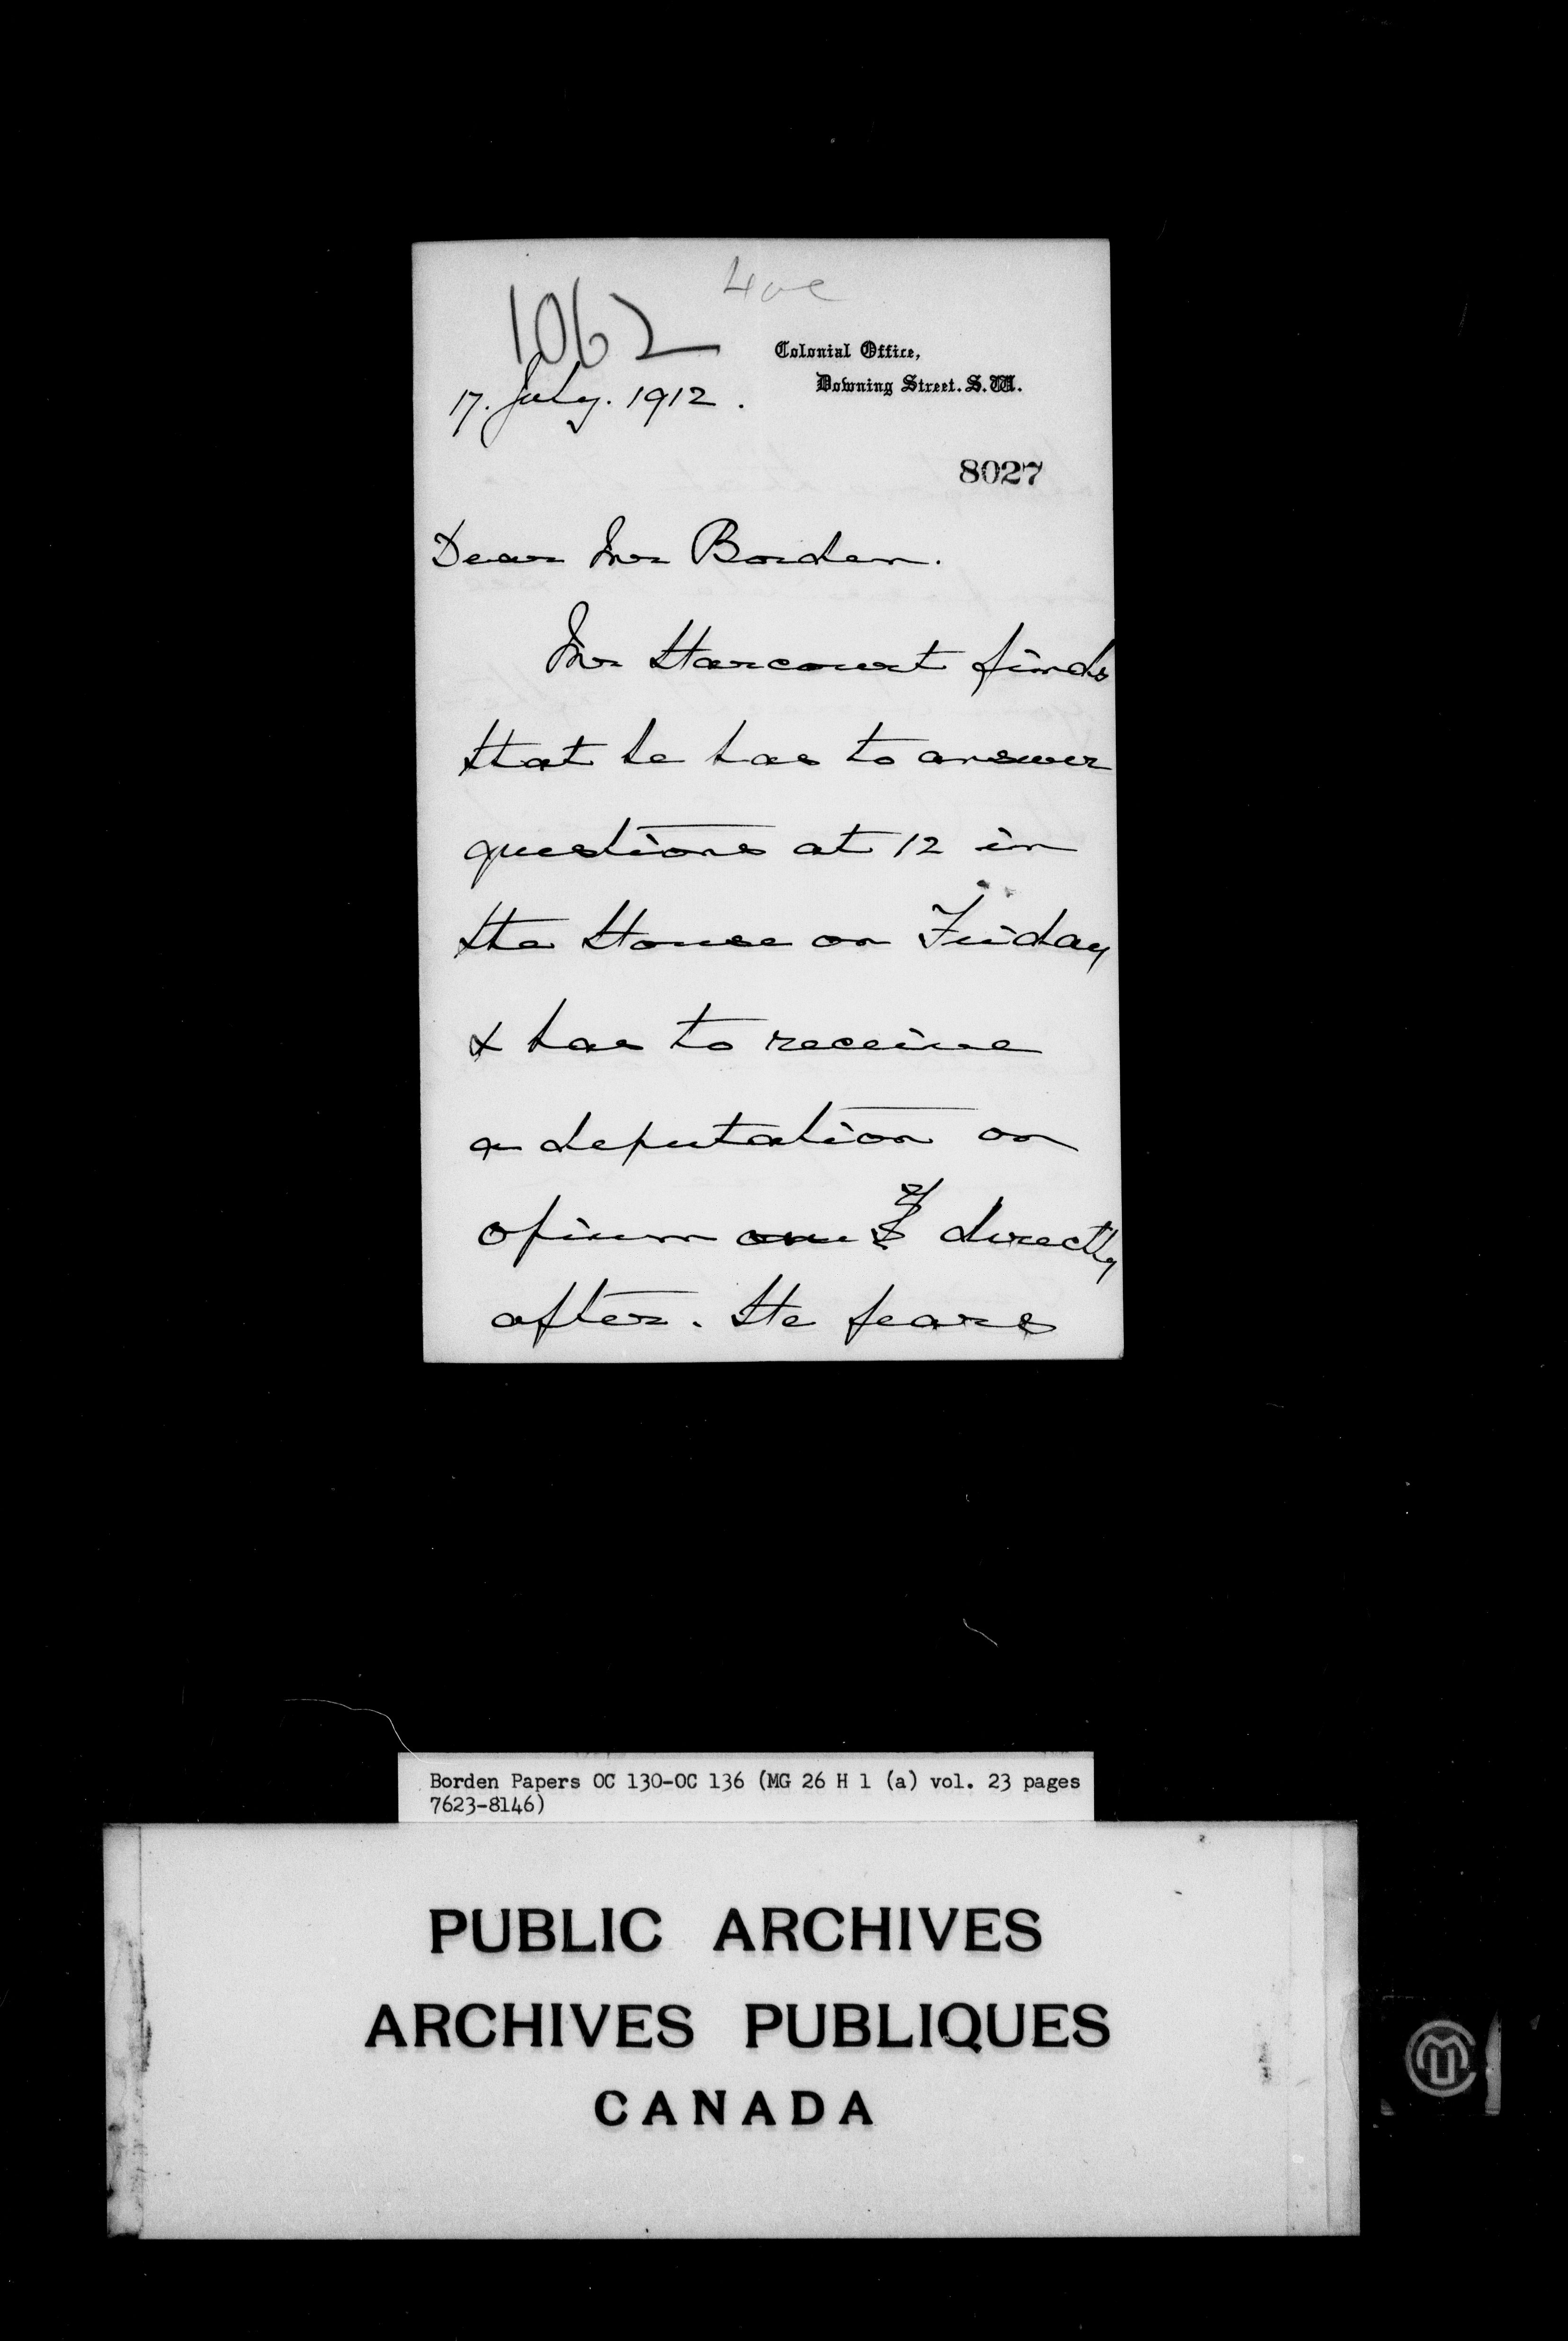 1062
Colonial Office,
Downing Street. S.W.
17. July. 1912.
8027
Dear Mr Borden.
Mr Harcourt finds
that he has to answer
questions at 12 in
the House on Friday
& has to receive
a deputation on
opium directly
after. He fears
Borden Papers OC 130-OC 136 (MG 26 H 1 (a) vol. 23 pages
7623-8146)
PUBLIC ARCHIVES
ARCHIVES PUBLIQUES
CANADA